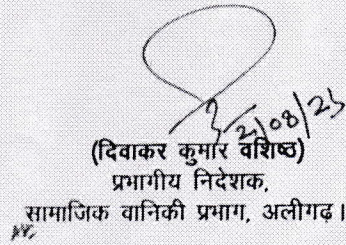 21/08/23
(दिवाकर कुमार वशिष्ठ)
प्रभागीय निदेशक,
सामाजिक वानिकी प्रभाग, अलीगढ़।